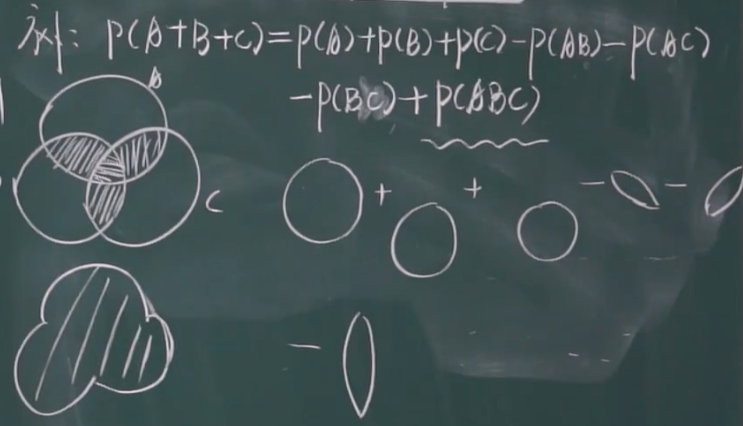 对: P(A+B+C)=P(A)+P(B)+P(C)-P(AB)-P(AC)
-P(BC)+P(ABC)
A
C
+ + - -
-